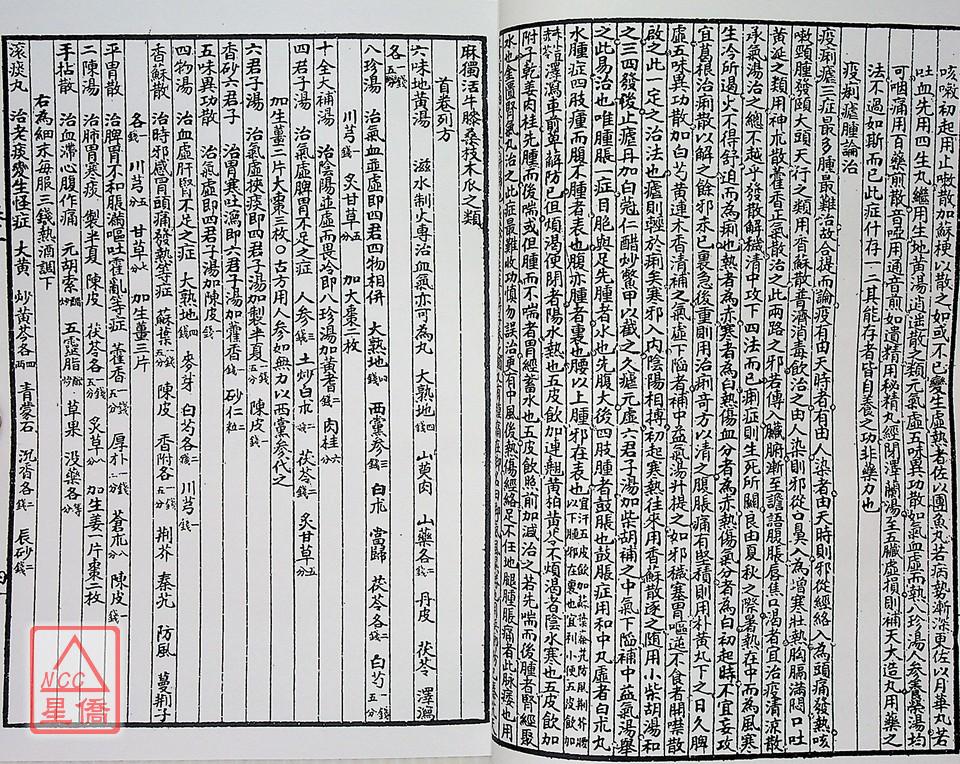 咳嗽初起用止嗽散加蘇梗以散之如或不已變生虛熱者佐以團魚丸若病勢漸深更佐以月華丸若
吐血先用四生丸繼用生地黃湯消遂散之類元氣虛五味異功散如氣血虛而熱八珍湯人參養榮湯均
可咽痛用百藥煎散音啞用通音煎如遺精用秘精丸經閉澤蘭湯至五臟虛損則補天大造丸用藥之
法不過如斯而已此症什存一二其能存者皆自養之功非藥力也
疫痢瘧腫論治
疫痢瘧三症最多腫最難治故合提而論疫有由天時者有由人染者由天時則邪從經絡入為頭痛發熱咳
嗽頸腫發頤大頭天行之類用香蘇散普濟消毒飲治之由人染則邪從口鼻入為增寒壯熱胸膈滿悶口吐
黃涎之類用神朮散藿香正氣散治之此兩路之邪若傳入臟腑漸至譫語腹脹唇焦口渴者宜治疫清涼散
承氣湯治之總不越乎發散解穢清中攻下四法而已痢症則生死所關良由夏秋之際暑熱在中而為風寒
生冷所遏火不得舒迫而為痢也熱者為赤寒者為白熱傷血分者為赤熱傷氣分者為白初起時不宜妄攻
宜葛根治痢散以解之餘邪未已裏急後重則用治痢奇方以清之腹脹痛有些積則用朴黃丸下之日久脾
虛五味異功散加白芍黃連木香清補之氣虛下陷者補中益氣湯升提之如邪穢塞胃嘔逆不食者開噤散
啟之此一定之治法也瘧則輕於痢矣寒邪入內陰陽相搏初起寒熱往來用香蘇散逐之隨用小柴胡湯和
之三四發後止瘧丹加白蔻仁醋炒鱉甲以截之久瘧元虛六君子湯加柴胡補之中氣下陷補中益氣湯舉
之此易治也唯腫脹一症日胞與足先腫者水也先腹大後四肢腫者鼓脹也鼓脹症用和中丸虛者白朮丸
麻獨活牛膝桑枝木瓜之類
首卷列方
六味地黃湯 滋水制火專治血氣亦可為丸 大熟地四錢 山萸肉 山藥各二錢 丹皮 茯苓 澤瀉
各一錢五分
八珍湯 治氣血並虛即四君四物相併 大熟地四錢 西黨參三錢 白朮 當歸 茯苓各二錢 白芍一錢五分
川芎一錢 炙甘草五分 加大棗二枚
十全大補湯 治陰陽並虛而畏冷即八珍湯加黃耆二錢 肉桂六分
四君子湯 治氣虛脾胃不足之症 人參二錢 土炒白朮二錢 茯苓二錢 炙甘草五分
加生薑三片大棗三枚〇古方用人參如無力以西黨參代之
六君子湯 治氣虛挾痰即四君子湯加製半夏一錢 陳皮一錢
香砂六君子 治胃寒吐瀉即六君子湯加藿香一錢 砂仁二粒
五味異功散 治氣虛即四君子湯加陳皮一錢
四物湯 治血虛肝腎不足之症 大熟地四錢 麥芽 白芍各二錢 川芎一錢
香蘇散 治時邪感冒頭痛發熱等症 蘇葉一錢五分 陳皮 香附各一錢五分 荆芥 秦艽 防風 蔓荆子
各一錢 川芎五分 甘草七分 加生薑三片
平胃散 治脾胃不和脹滿嘔吐霍亂等症 藿香一錢五分 厚朴一錢五分 蒼朮八分 陳皮一錢
二陳湯 治肺胃寒痰 製半夏 陳皮一錢 茯苓各一錢五分 炙草八分 加生姜一片棗二枚
手拈散 治血滯心腹作痛 元胡索醋炒 五靈脂醋炒 草果 沒藥各等分
右為細末每服三錢熱酒調下
滾痰丸 治老痰變生怪症 大黃 炒黃芩各四兩 青蒙石 沉香各三錢 辰砂二錢
NCC
星僑